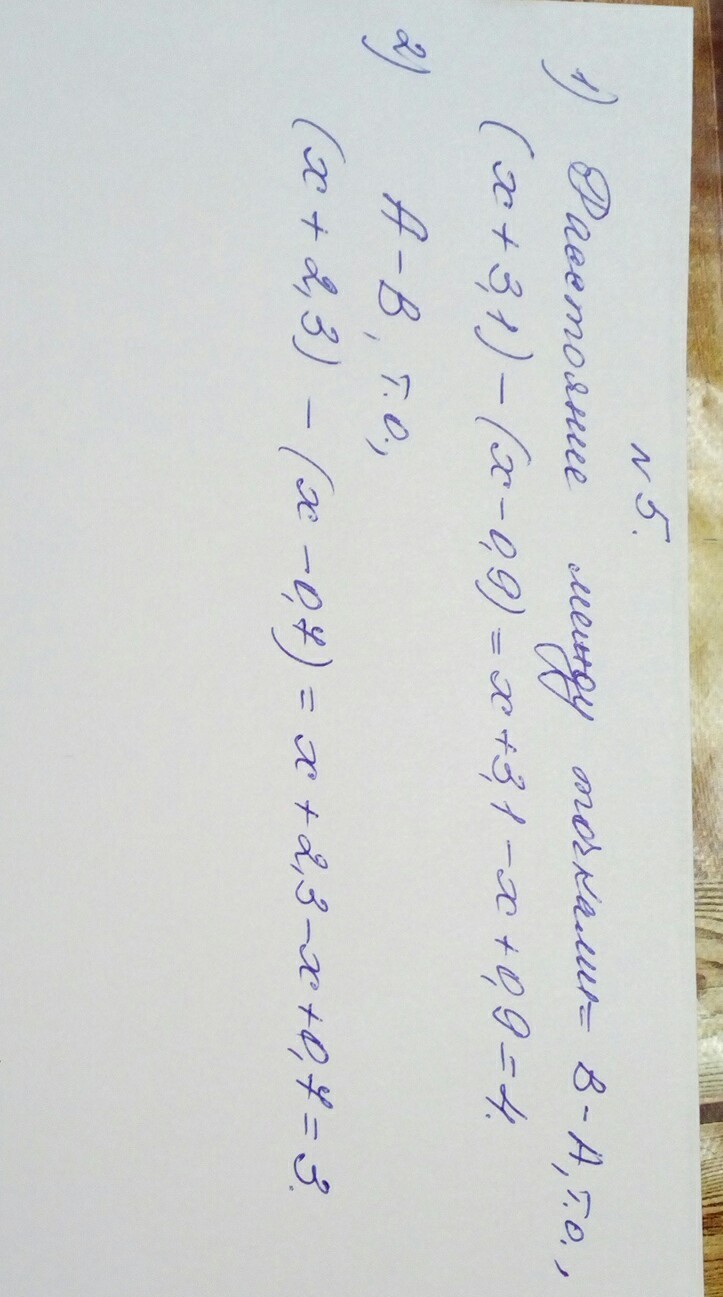 № 5.
1) Расстояние между точками = В - А, т.о.,
(х + 3,1) - (х - 0,9) = х + 3,1 - х + 0,9 = 4.
2) А - В, т.о.,
(х + 2,3) - (х - 0,7) = х + 2,3 - х + 0,7 = 3.